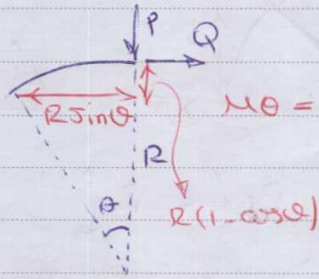 P
Q
R sinθ
Mθ =
R
θ
R(1-cosθ)